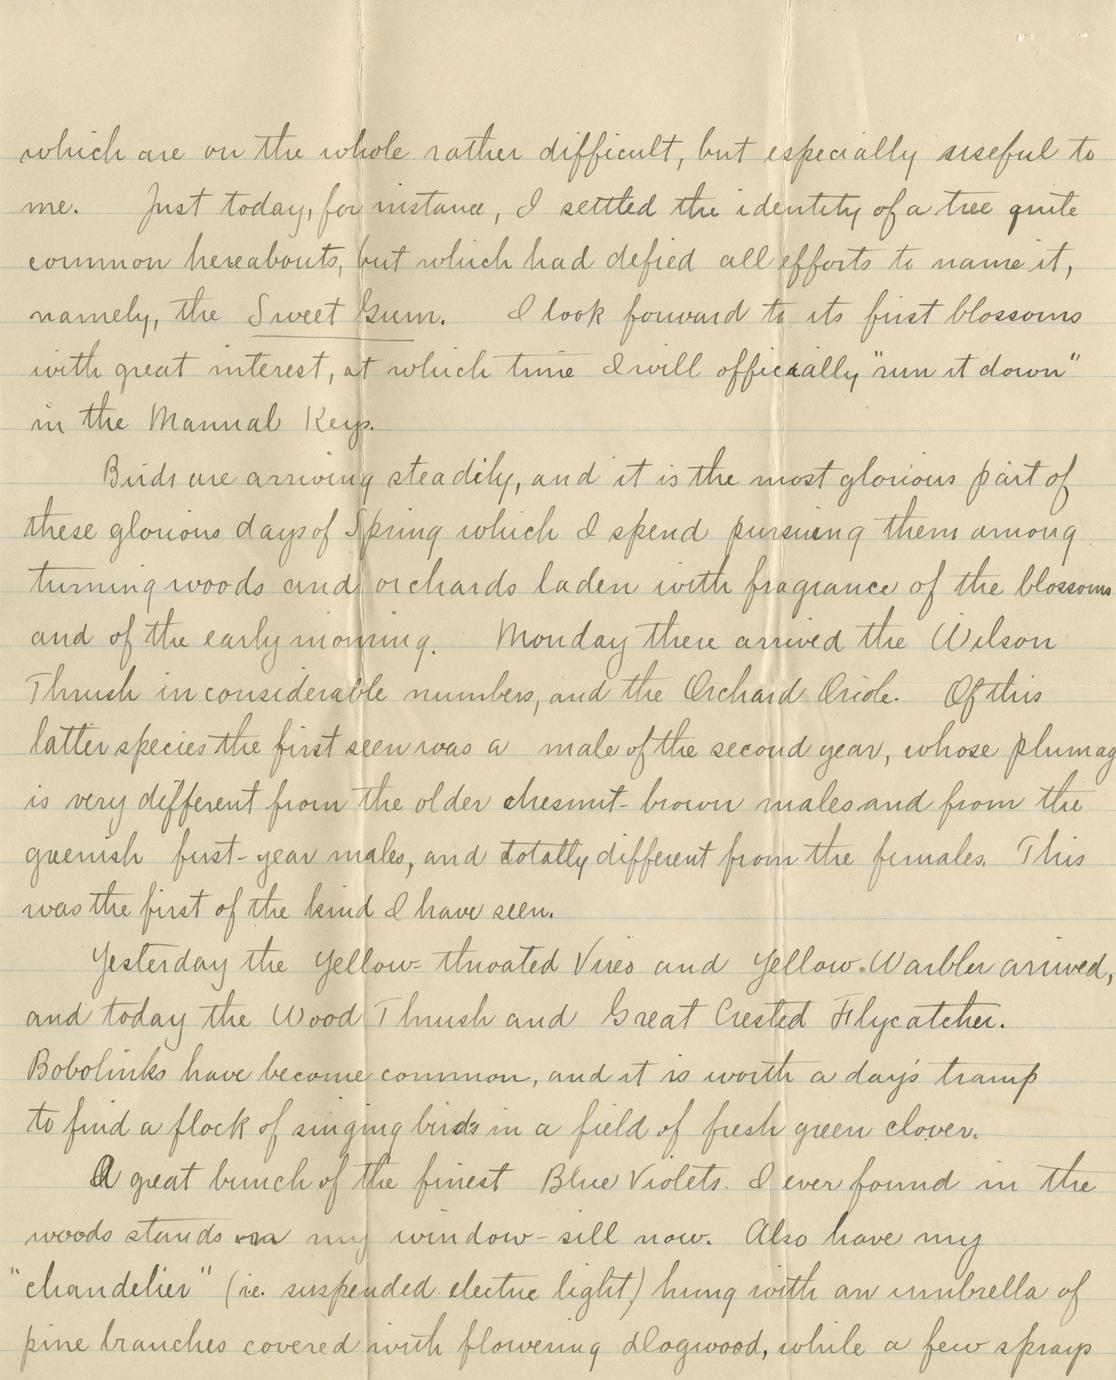 which are on the whole rather difficult, but especially useful to
me. Just today, for instance, I settled the identity of a tree quite
common hereabouts, but which had defied all efforts to name it,
namely, the Sweet Gum. I look forward to its first blossoms
with great interest, at which time I will officially "run it down"
in the Manual Keys.
Birds are arriving steadily, and it is the most glorious part of
these glorious days of Spring which I spend pursuing them among
turning woods and orchards laden with fragrance of the blossoms
and of the early morning. Monday there arrived the Wilson
Thrush in considerable numbers, and the Orchard Oriole. Of this
latter species the first seen was a male of the second year, whose plumag
is very different from the older chesnut-brown males and from the
greenish first-year males, and totally different from the females. This
was the first of the kind I have seen.
Yesterday the Yellow-throated Vireo and Yellow Warbler arrived,
and today the Wood Thrush and Great Crested Flycatcher.
Bobolinks have become common, and it is worth a day's tramp
to find a flock of singing birds in a field of fresh green clover.
A great bunch of the finest Blue Violets I ever found in the
woods stands on my window-sill now. Also have my
"chandelier" (i.e. suspended electric light) hung with an umbrella of
pine branches covered with flowering Dogwood, while a few sprays